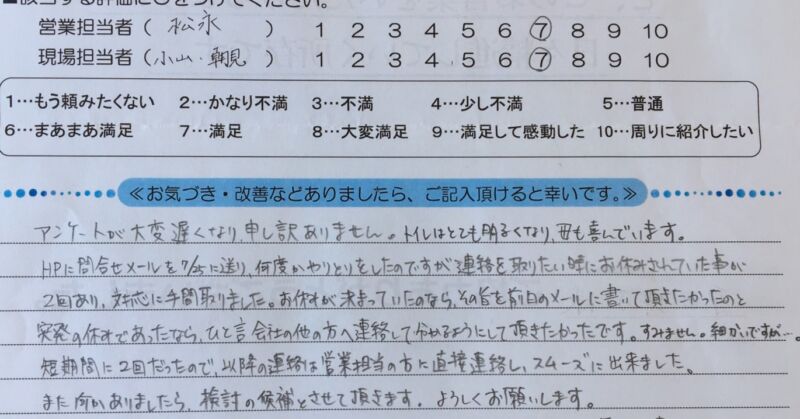 ■該当する評価に○をつけてください。
営業担当者（ 松永 ） 1 2 3 4 5 6 ⑦ 8 9 10
現場担当者（小山・朝見） 1 2 3 4 5 6 ⑦ 8 9 10
1…もう頼みたくない 2…かなり不満 3…不満 4…少し不満 5…普通
6…まあまあ満足 7…満足 8…大変満足 9…満足して感動した 10…周りに紹介したい
≪お気づき・改善などありましたら、ご記入頂けると幸いです。≫
アンケートが大変遅くなり、申し訳ありません。トイレはとても明るくなり、母も喜んでいます。
HPに問合せメールを7/25に送り、何度かやりとりをしたのですが連絡を取りたい時にお休みされていた事が
2回あり、対応に手間取りました。お休みが決まっていたのなら、その旨を前日のメールに書いて頂きたかったのと
突発の休みであったなら、ひと言会社の他の方へ連絡して分かるようにして頂きたかったです。すみません。細かいですが…。
短期間に2回だったので、以降の連絡は営業担当の方に直接連絡し、スムーズに出来ました。
また何かありましたら、検討の候補とさせて頂きます。よろしくお願いします。